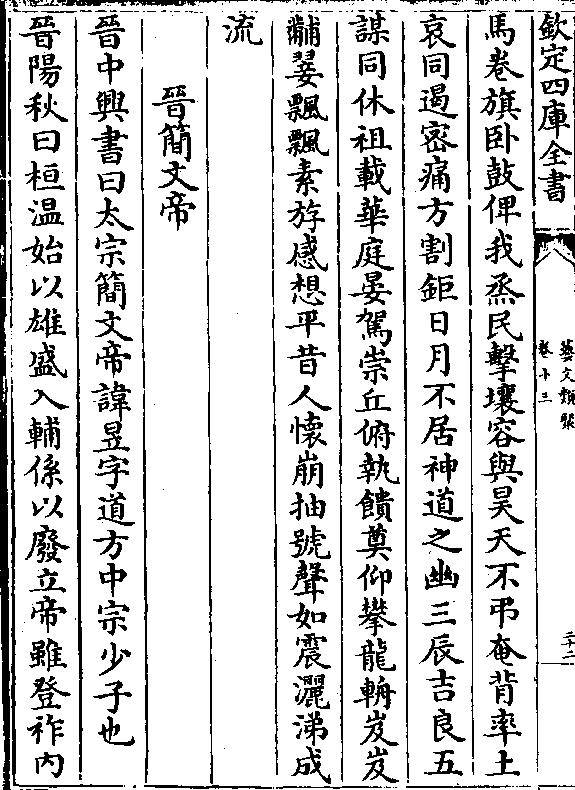 欽定四庫全書
藝文類聚
卷十三
二十二
馬卷旗卧鼓俾我烝民擊壤容與昊天不弔奄背率土
哀同遏密痛方割鉅日月不居神道之幽三辰吉良五
謀同休祖載華庭晏駕崇丘俯執饋奠仰攀龍輈岌岌
黼翣飄飄素斿感想平昔人懷崩抽號聲如震灑涕成
流
晉簡文帝
晉中興書曰太宗簡文帝諱昱字道方中宗少子也
晉陽秋曰桓温始以雄盛入輔係以廢立帝雖登祚内